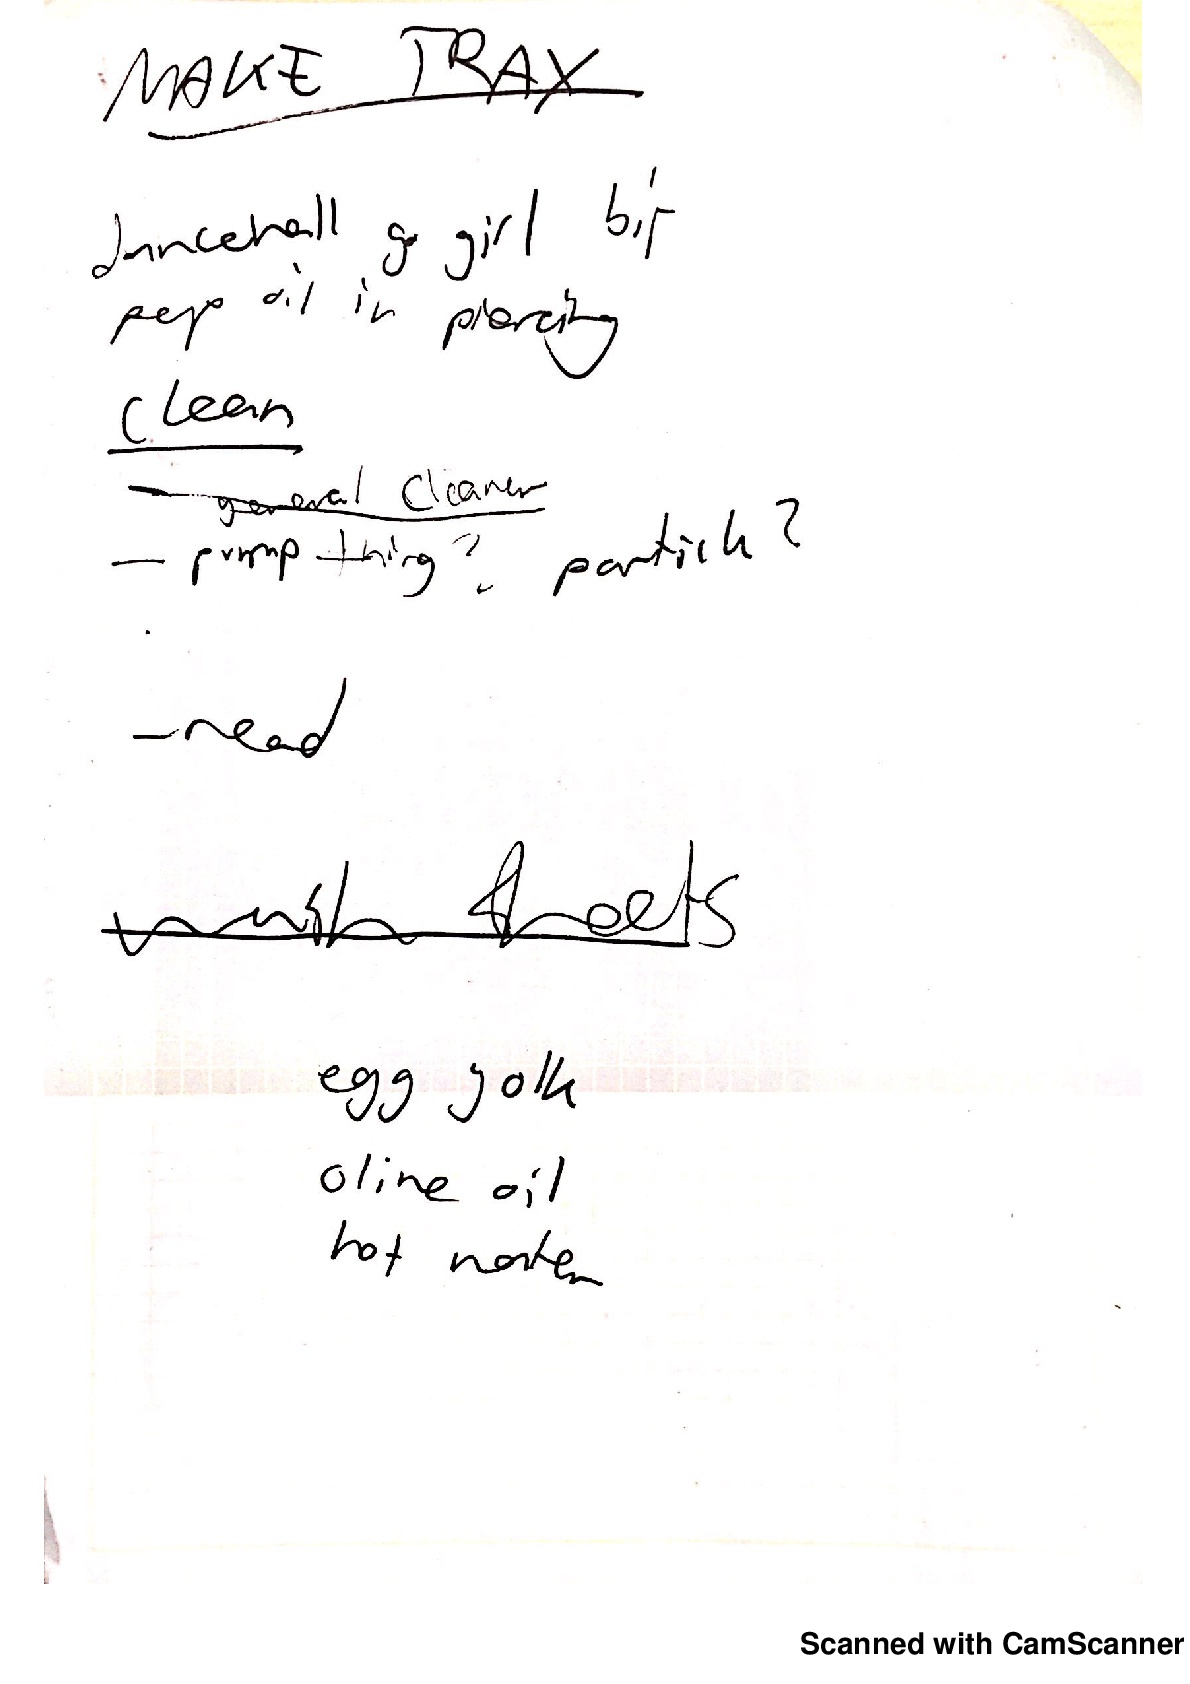 MAKE TRAX
dancehall go girl bit
pepp oil in piercing
clean
- general cleaner
- pump thing? partick?
- read
wash sheets
egg yolk
olive oil
hot water
Scanned with CamScanner